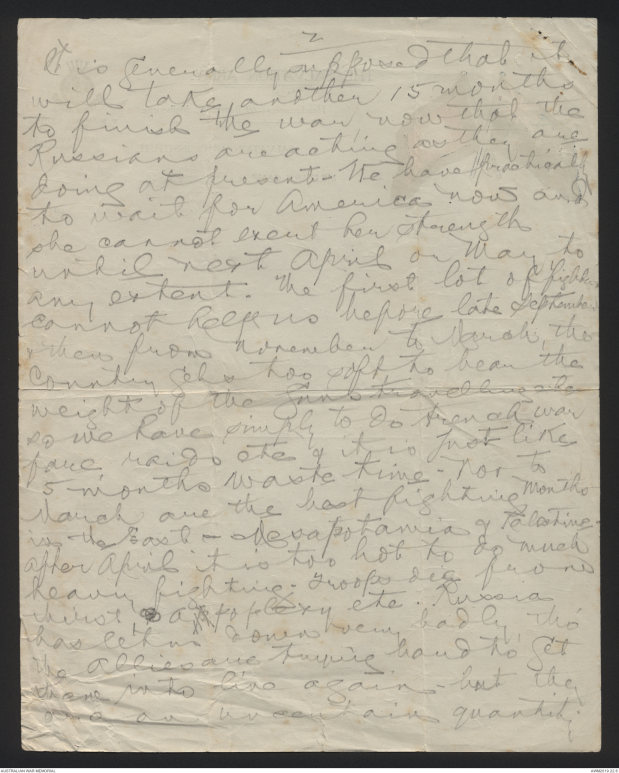 2
It is generally supposed that it
will take another 15 months
to finish the war now that the
Russians are acting as they are
doing at present - We have practically
to wait for America now and
she cannot exert her strength
until next April or May to
any extent. The first lot of fighters
cannot help us before late September
& then from November to March, the
country gets too soft to bear the
weight of the guns
so we have simply to do trench war
fare raids etc & it is just like
5 months waste time - Nov to
March are the best fighting months
in the East - Mesapotamia & Palestine -
after April it is too hot to do much
heavy fighting - Troops die from
thirst apoplexy etc. Russia
has let us down very badly, tho
the allies are trying hard to get
them into line again - but they
are an uncertain quantity.
AUSTRALIAN WAR MEMORIAL
AWM2019.22.6